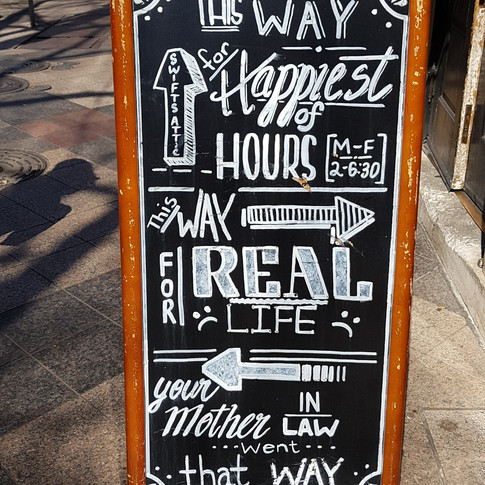 THIS WAY
SWIFTS ATTIC
for
Happiest
of
HOURS [M-F
2-6:30]
This WAY
FOR REAL
LIFE
your
Mother IN
LAW
Went
that WAY